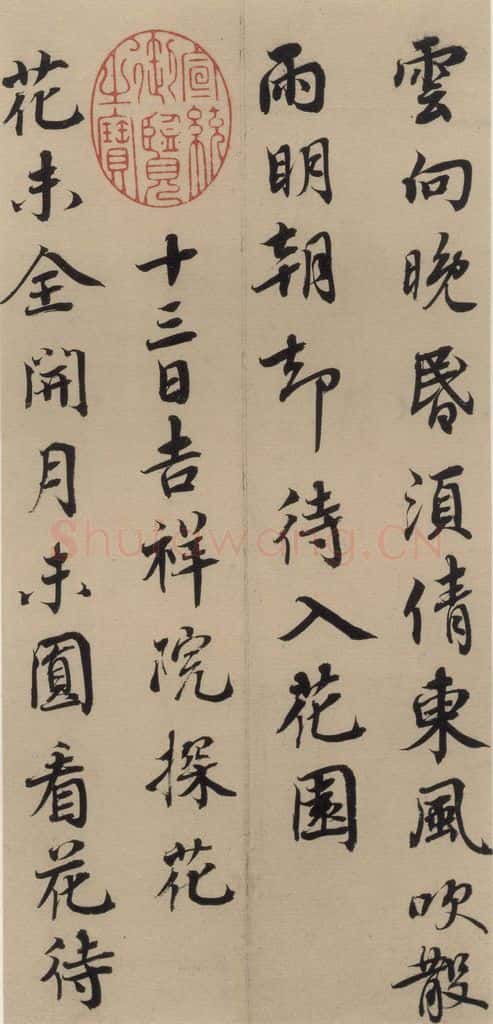 雲向晚昬須倩東風吹散
雨明朝却待入花園
宣統御覽之寶
十三日吉祥院探花
花未全開月未圓看花待
Shufawang.CN